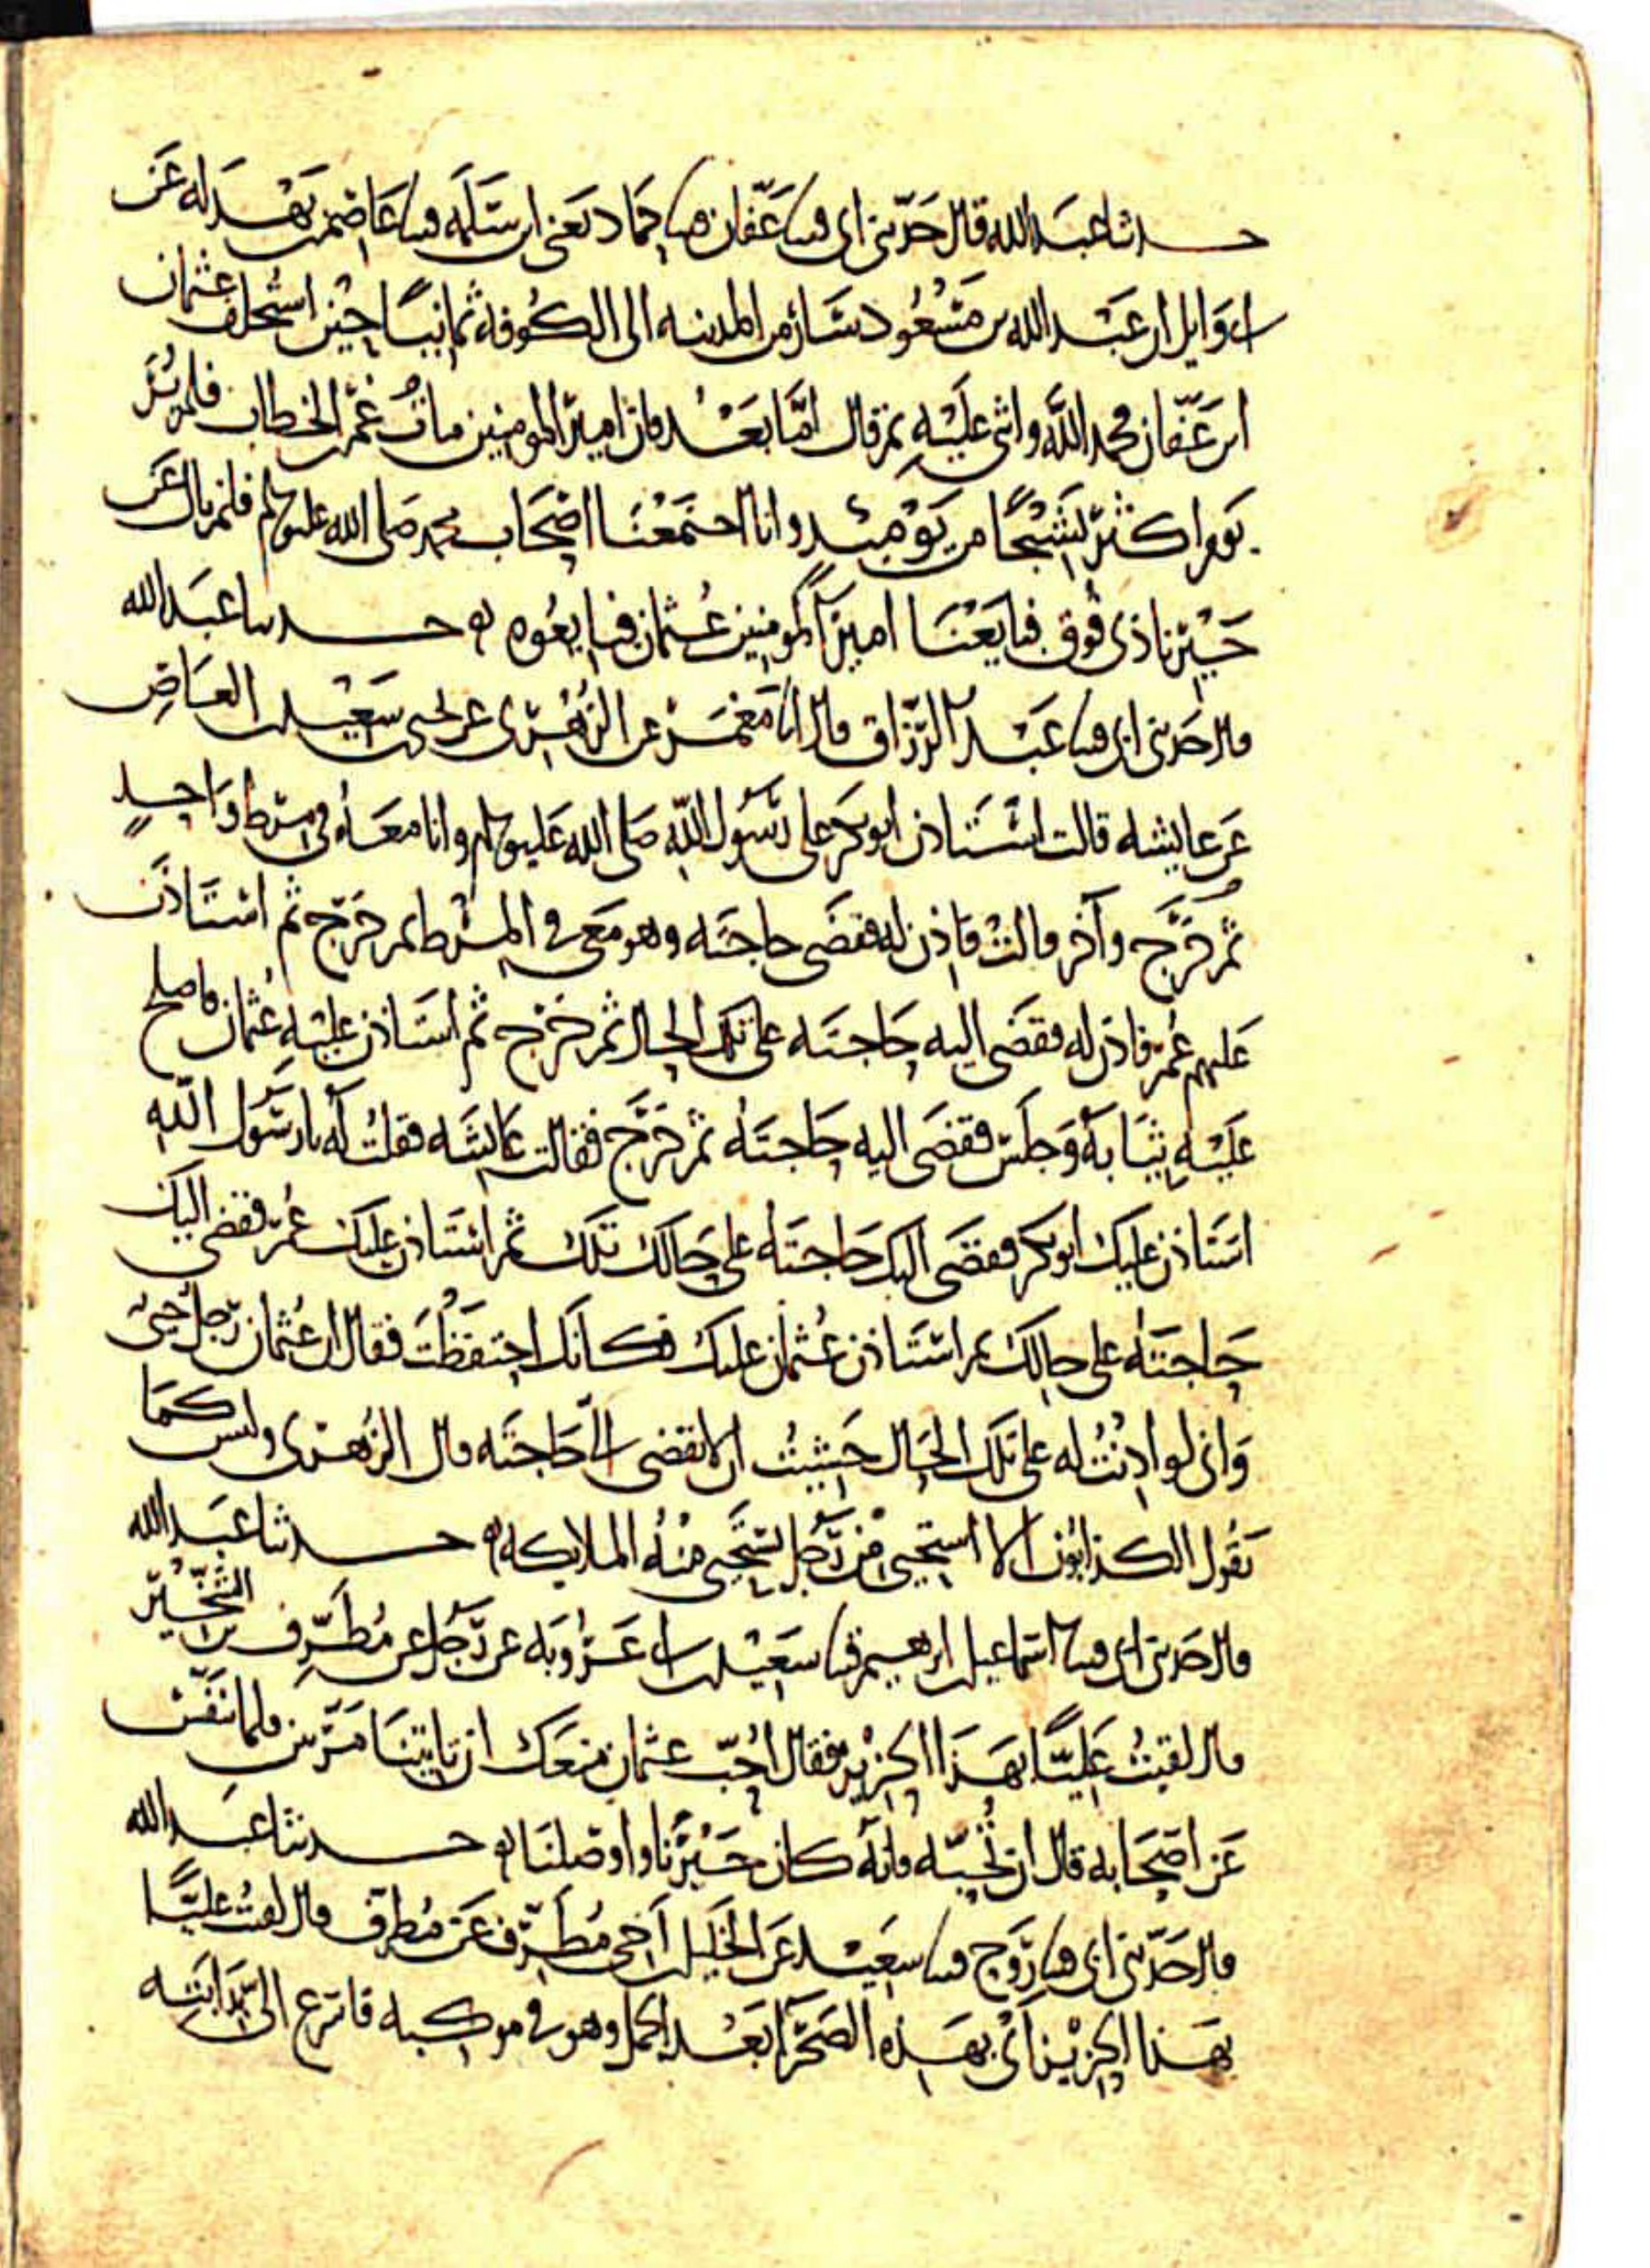 حدثنا عبد الله قال حدثني ابي قثنا عفان قثنا حماد يعني ابن سلمه قثنا عاصم بن بهدله عن
ابي وايل ان عبد الله بن مسعود سار من المدينه الى الكوفه ثمانيا حين استخلف عثمان
ابن عفان فحمد الله واثنى عليه ثم قال اما بعد فان امير المومنين مات عمر بن الخطاب فلم نر
يوما اكثر نشيجا من يوميذ وانا اجتمعنا اصحاب محمد صلى الله عليه وسلم فلم نال عن
خيرنا ذي فوق فبايعنا امير المومنين عثمان فبايعوه ه حدثنا عبد الله
قال حدثني ابي قثنا عبد الرزاق قال انا معمر عن الزهري عن يحيى بن سعيد بن العاص
عن عايشه قالت استاذن ابو بكر على رسول الله صلى الله عليه وسلم وانا معه في مرط واحد
ثم خرج وآخر قالت فاذن له فقضى حاجته وهو معي في المرط ثم خرج ثم استاذن
عليهم عمر فاذن له فقضى اليه حاجته على تلك الحال ثم خرج ثم استاذن عليه عثمان فاصلح
عليه ثيابه وجلس فقضى اليه حاجته ثم خرج فقالت عايشه فقلت له يا رسول الله
استاذن عليك ابو بكر فقضى اليك حاجته على حالك تلك ثم استاذن عليك عمر فقضى اليك
حاجته على حالك ثم استاذن عثمان عليك فكانك احتفظت فقال ان عثمان رجل حيي
واني لو اذنت له على تلك الحال خشيت ان لا يقضي الي حاجته قال الزهري وليس كما
يقول الكذابون الا استحيي من رجل تستحيي منه الملايكه ه حدثنا عبد الله
قال حدثني ابي قثنا اسماعيل بن ابرهيم قثنا سعيد بن ابي عروبه عن رجل عن مطرف بن الشخير
قال لقيت عليا بهذا الحزيز فقال احب عثمان منعك ان تاتينا مرتين فلما تنفس
عن اصحابه قال ان تحبه فانه كان خيرنا واوصلنا ه حدثنا عبد الله
قال حدثني ابي قثنا روح قثنا سعيد عن الخليل اخي مطرف عن مطرف قال لقيت عليا
بهذا الحزيز اي بهذه الصحرا بعد الجمل وهو في موكبه فاسرع الي بدابته